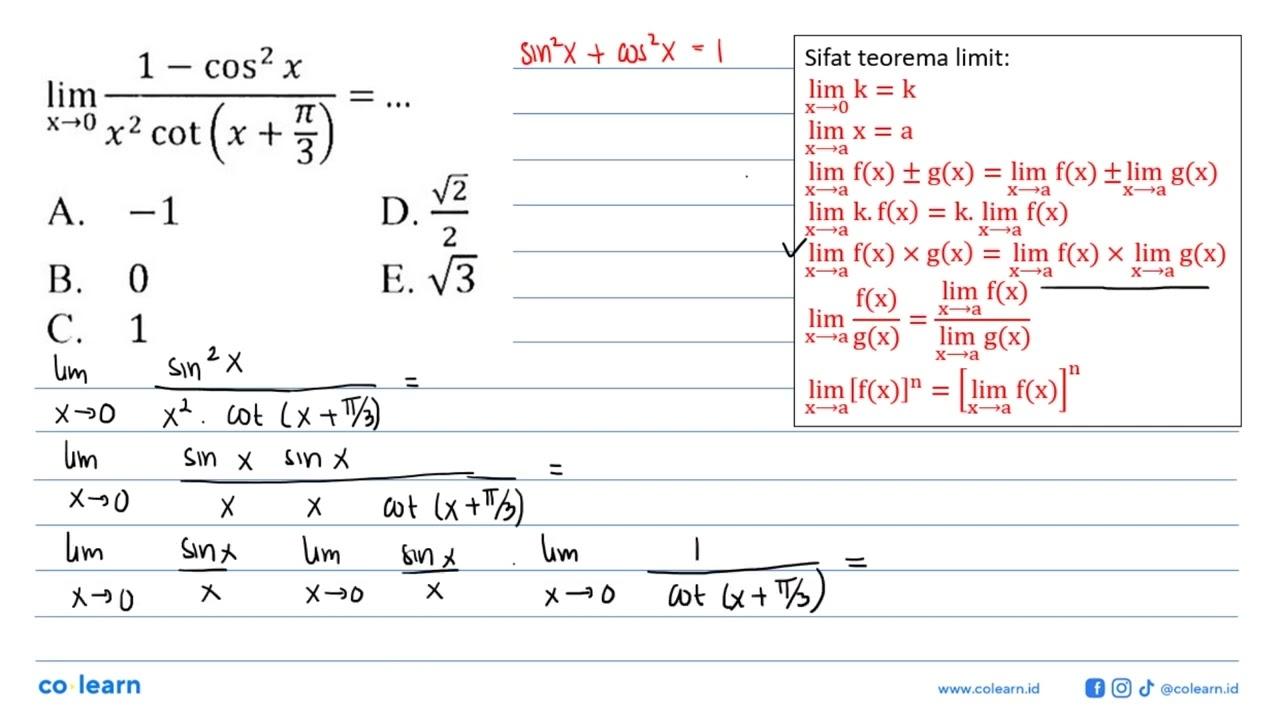 lim x→0 (1 − cos² x) / (x² cot(x + π/3)) = ...
A. −1
B. 0
C. 1
D. √2/2
E. √3
sin²x + cos²x = 1
Sifat teorema limit:
lim x→0 k = k
lim x→a x = a
lim x→a f(x) ± g(x) = lim x→a f(x) ± lim x→a g(x)
lim x→a k. f(x) = k. lim x→a f(x)
✓ lim x→a f(x) × g(x) = lim x→a f(x) × lim x→a g(x)
lim x→a f(x)/g(x) = lim x→a f(x) / lim x→a g(x)
lim x→a [f(x)]ⁿ = [lim x→a f(x)]ⁿ
lim x→0 sin² x / (x² . cot (x + π/3)) =
lim x→0 sin x sin x / (x x cot (x + π/3)) =
lim x→0 sin x / x lim x→0 sin x / x . lim x→0 1 / cot (x + π/3) =
co learn
www.colearn.id
@colearn.id